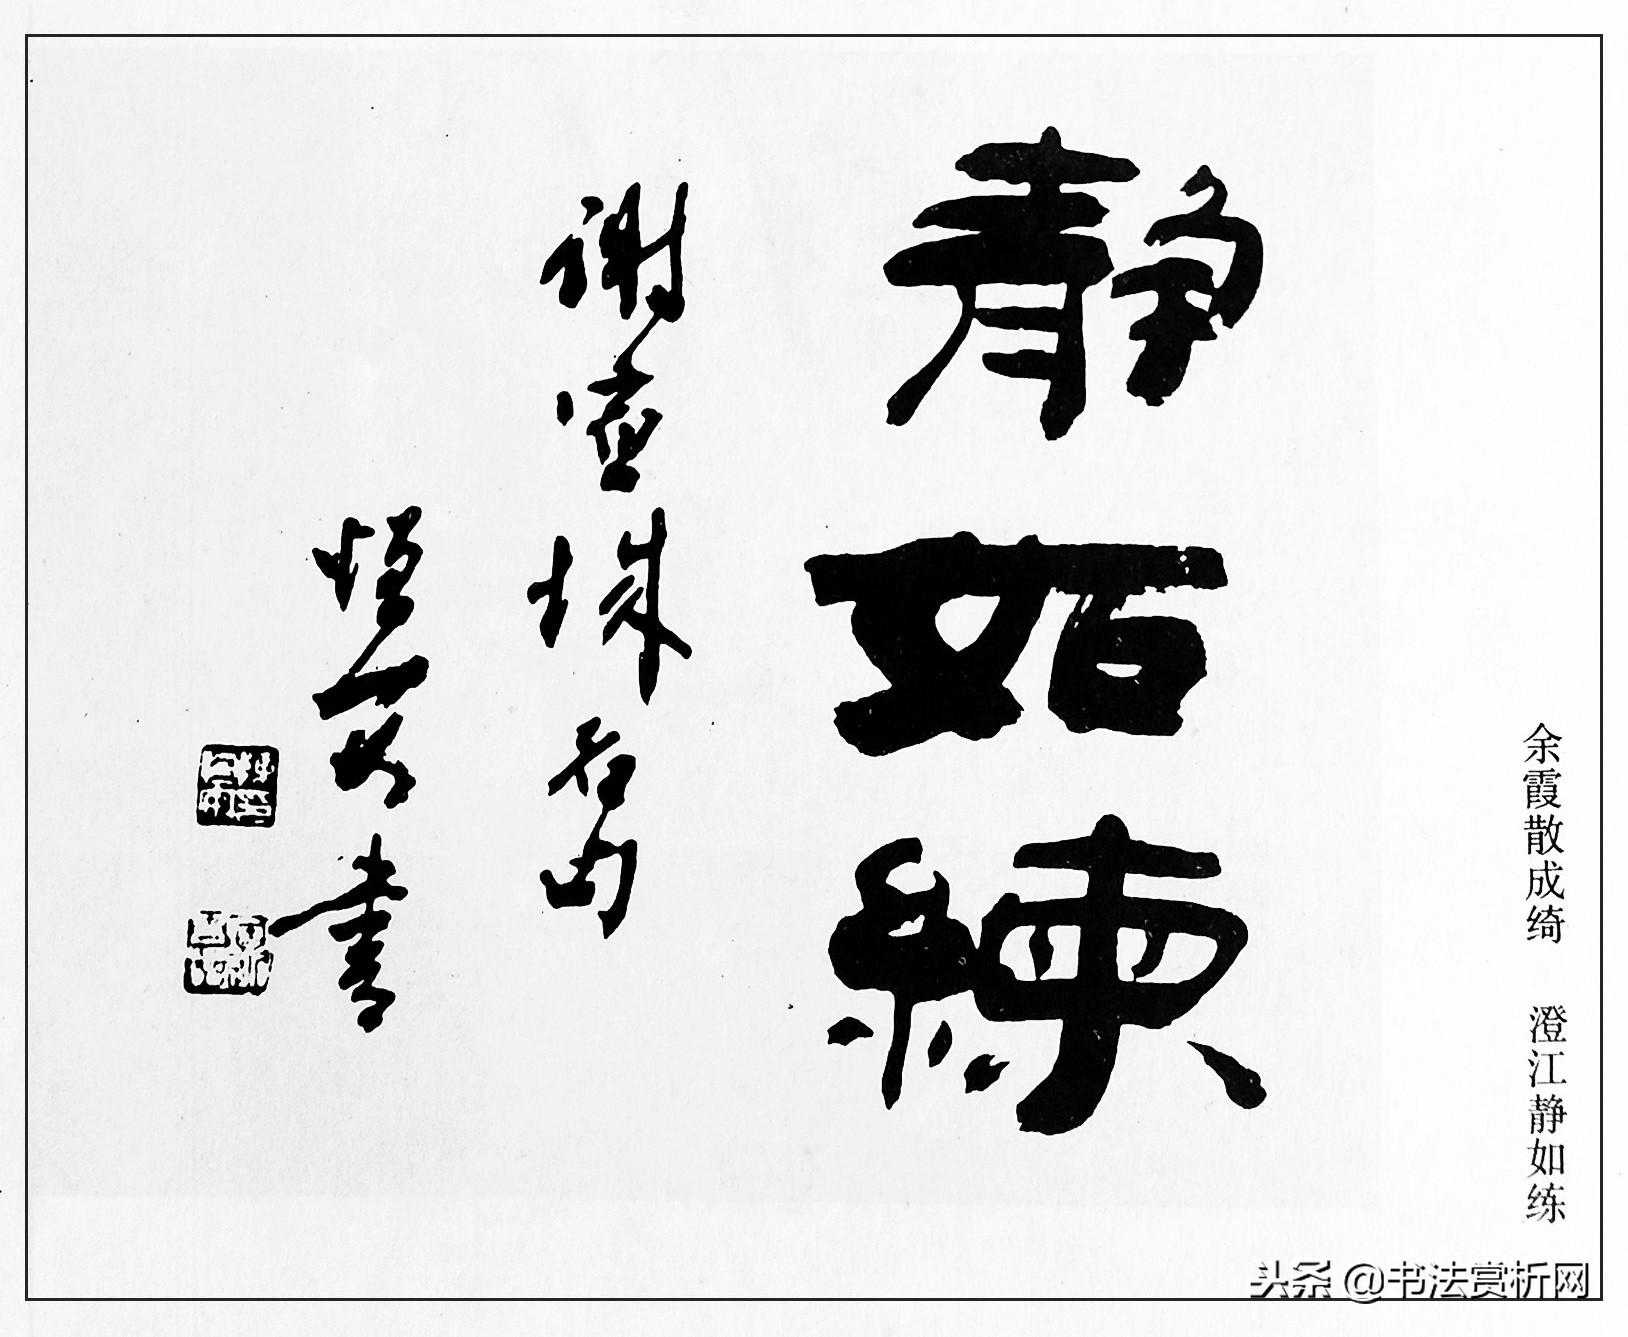 余霞散成绮 澄江静如练
静如練
謝宣城名句
恒安書
头条 @书法赏析网